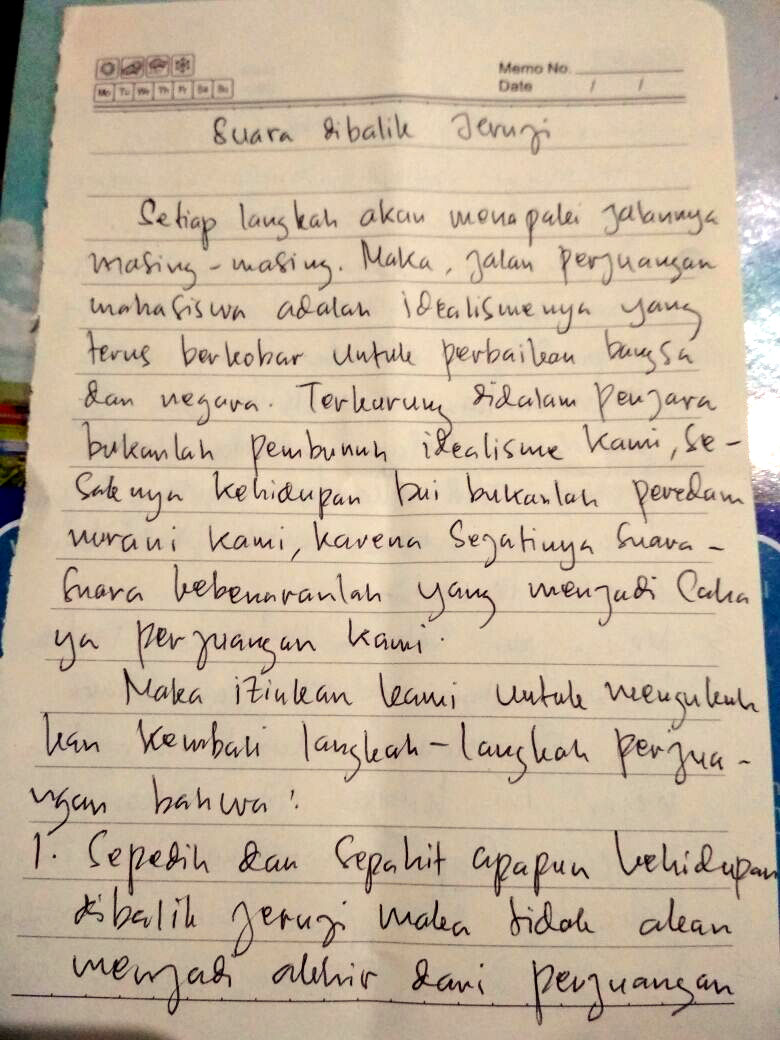 Memo No.
Mo Tu We Th Fr Sa Su
Date / /
Suara dibalik Jeruji
Setiap langkah akan menapaki jalannya
masing-masing. Maka, jalan perjuangan
mahasiswa adalah idealismenya yang
terus berkobar untuk perbaikan bangsa
dan negara. Terkurung didalam penjara
bukanlah pembunuh idealisme kami, se-
saknya kehidupan bui bukanlah peredam
nurani kami, karena sejatinya suara-
suara kebenaranlah yang menjadi Caha
ya perjuangan kami.
Maka izinkan kami untuk mengukuh
kan kembali langkah-langkah perjua-
ngan bahwa:
1. Sepedih dan sepahit apapun kehidupan
dibalik jeruji maka tidak akan
menjadi akhir dari perjuangan